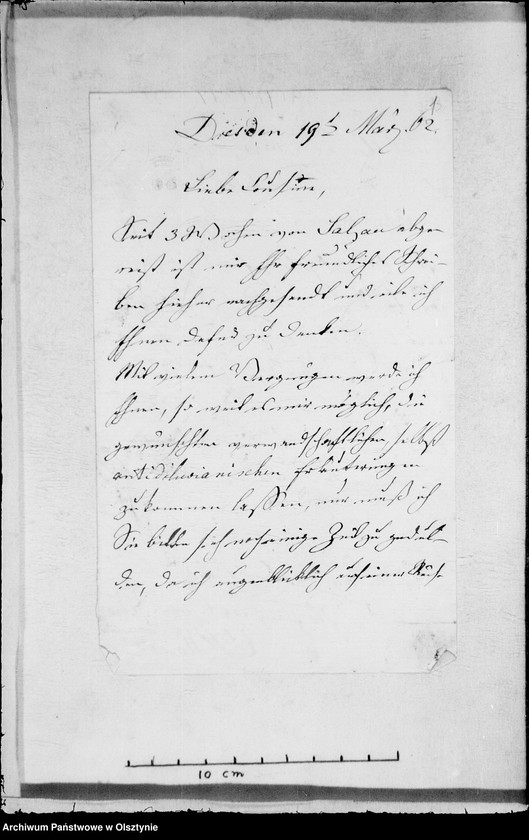 1
Dresden 19t März. 62.
Liebe Cousine,
Seit 3 Wochen von Salzau abge-
reist ist mir Ihr freundliches Schrei-
ben hieher nachgesandt und eile ich
Ihnen dafür zu danken.
Mit vielem Vergnügen werde ich
Ihnen, so weit es mir möglich, die
gewünschten verwandschaftlichen selbst
antidiluvianischen Erläuterungen
zukommen lassen, nur muß ich
Sie bitten sich noch einige Zeit zu gedul-
den, da ich augenblicklich auf einer Reise
10 cm
Archiwum Państwowe w Olsztynie